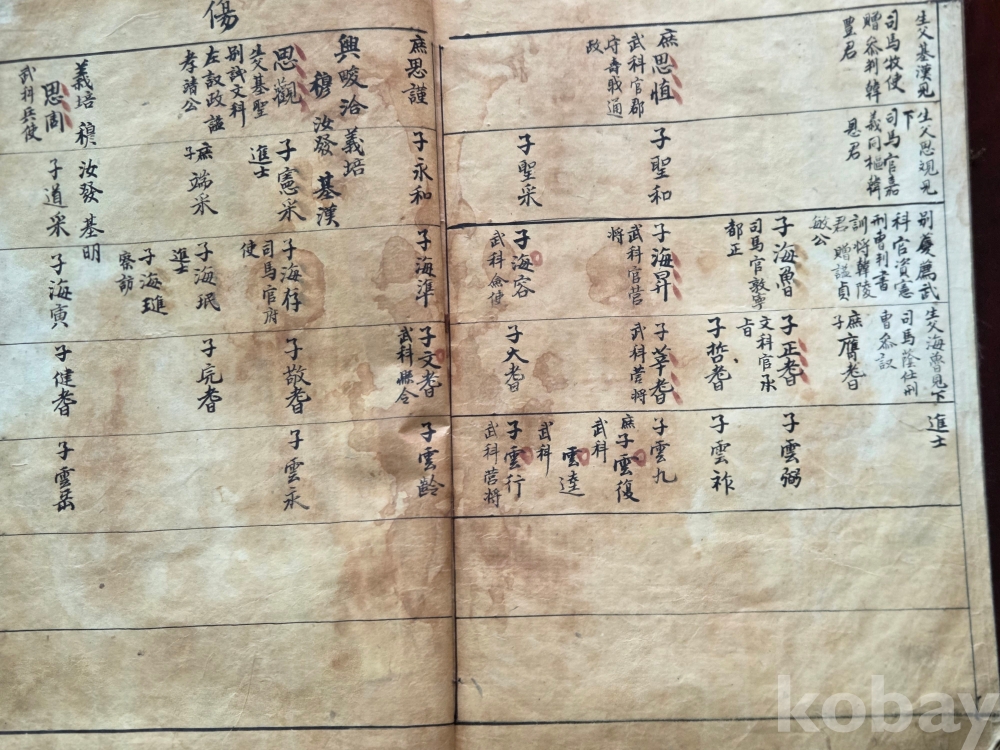 生父基漢見
司馬牧使
贈叅判韓
豊君
庶思愼
武科官郡
守壽戢通
政
生父思觀見
下
司馬官嘉
義同樞韓
恩君
子聖和
子聖采
別薦爲武
科官資憲
刑曹判書
訓將韓陵
君贈諡貞
敏公
子海魯
司馬官敦寧
都正
子海昇
武科官营
將
子海容
武科僉使
生父海魯見下
司馬蔭仕刑
曹叅議
庶子膺耆
子正耆
文科官承
旨
子哲耆
子莘耆
武科营將
子大耆
進士
子雲弼
子雲祚
子雲九
庶子雲復
武科
雲逵
武科
子雲行
武科营將
傷
庶思謹
興畯洽義培
穆汝發基漢
思觀
生父基聖
別試文科
左議政諡
孝靖公
義培穆汝發基明
思周
武科兵使
子永和
子憲采
進士
庶子端采
子道采
子海準
子海存
司馬官府
使
子海珉
進士
子海璡
察訪
子海寅
子文耆
武科縣令
子敬耆
子完耆
子健耆
子雲齡
子雲永
子雲岳
kobay